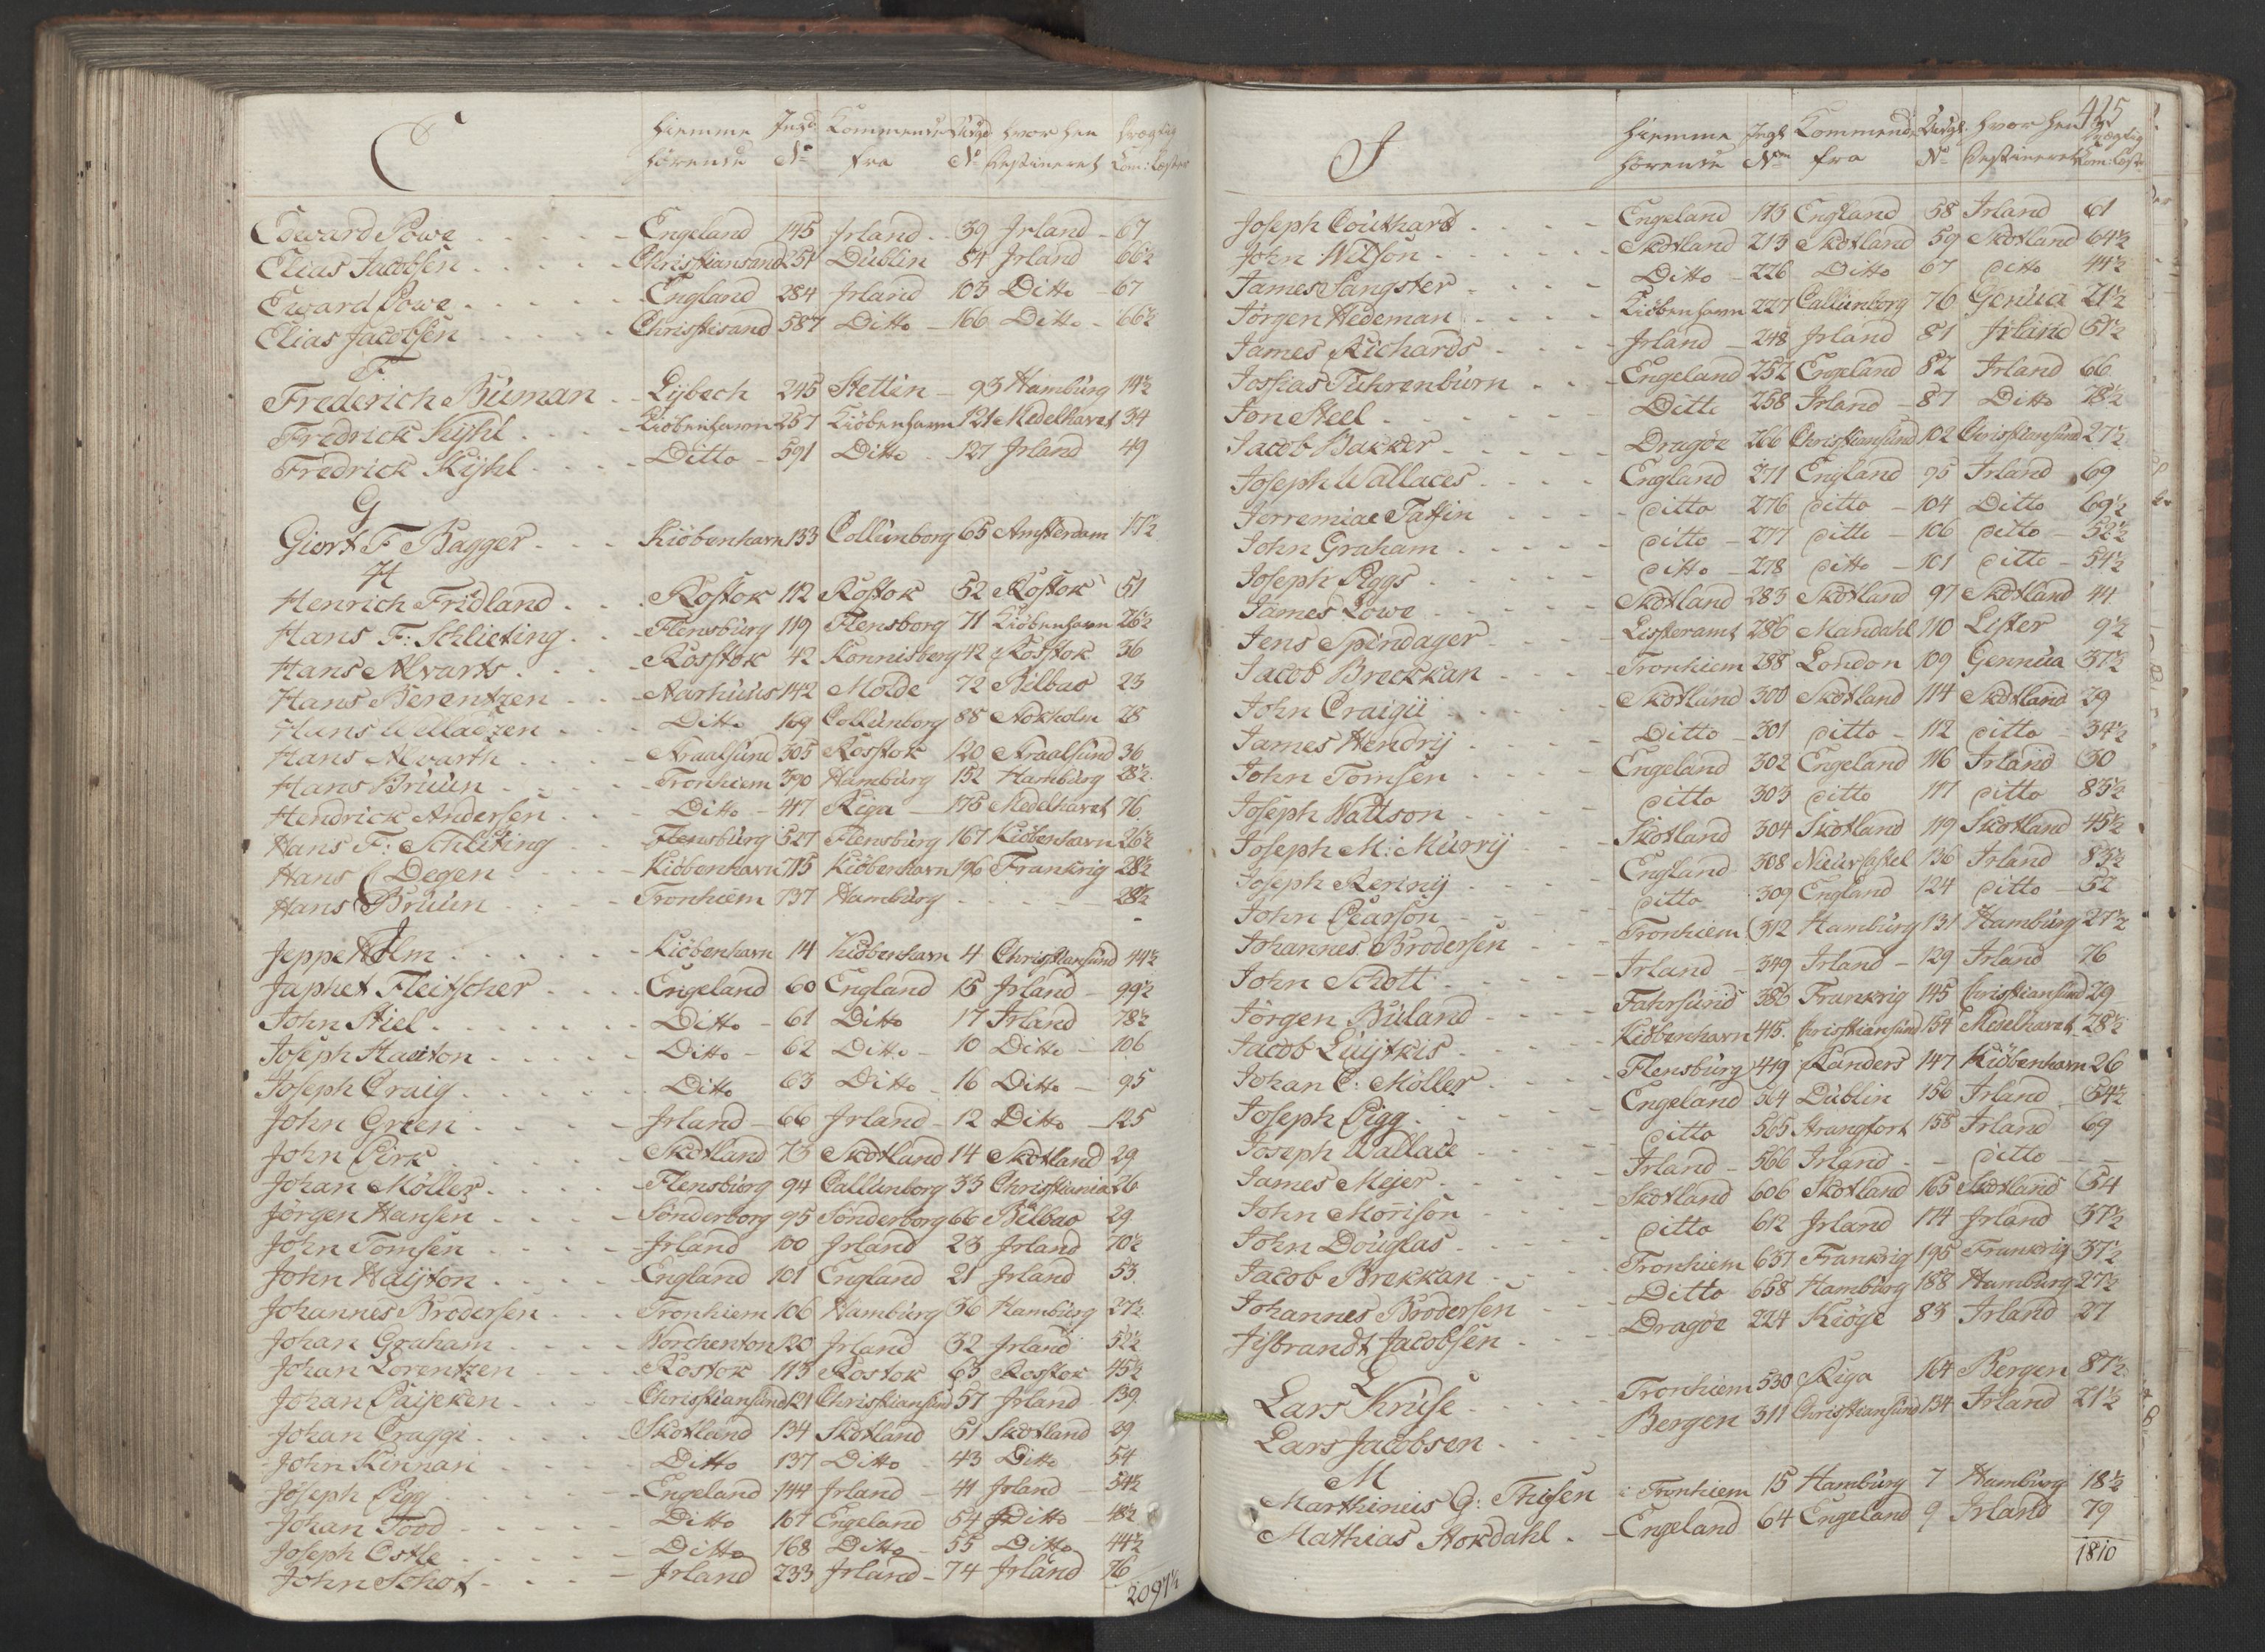 E Hiemme hørende Indg: No Kommende fra Udgd No hvor hen destineret Drægtig Com: Læster
Edward Powe Engeland 145 Irland 39 Irland 67
Elias Jacobsen Christiansand 251 Dublin 84 Irland 66½
Edward Powe England 284 Irland 103 Ditto 67
Elias Jacobsen Christisand 587 Ditto 166 Ditto 66½
F
Frederich Buman Lybech 245 Stettin 93 Hamburg 14½
Fredrick Kyhl Kiöbenhavn 257 Kiöbenhavn 121 Medelhavet 34
Fredrick Kyhl Ditto 591 Ditto 127 Irland 49
G
Giort F Bagger Kiöbenhavn 133 Collunborg 65 Amsterdam 17½
H
Henrich Fridland Rostok 112 Rostok 52 Rostok 51
Hans F: Schlieting Flensburg 119 Flensborg 71 Kiöbenhavn 26½
Hans Alvarts Rostok 42 Konnisberg 42 Rostok 36
Hans Berentzen Aarhuus 142 Molde 72 Bilbao 23
Hans Ditto 169 Collunborg 88 Stokholm 28
Hans Alvarth Straalsund 305 Rostok 120 Straalsund 36
Hans Bruun Tronhiem 390 Hamburg 152 Hamburg 28½
Hendrick Andersen Ditto 417 Riga 175 Medelhavet 76
Hans F: Schliting Flensburg 527 Flensburg 167 Kiöbenhavn 26½
Hans C Degen Kiöbenhavn 715 Kiöbenhavn 196 Frankrig 28½
Hans Bruun Tronhiem 737 Hamburg 28½
J
Jeppe Holm Kiöbenhavn 14 Kiöbenhavn 4 Christiansund 44½
Japhet Fleitscher Engeland 60 England 15 Irland 99½
John Stiel Ditto 61 Ditto 17 Irland 78½
Joseph Ditto 62 Ditto 10 Ditto 106
Joseph Craig Ditto 63 Ditto 16 Ditto 95
John Green Irland 66 Irland 12 Ditto 125
John Kirk Skotland 73 Skotland 14 Skotland 29
Johan Möller Flensburg 94 Callunborg 33 Christiania 26
Jorgen Hansen Sönderborg 95 Sönderborg 66 Bilbao 29
John Tomsen Irland 100 Irland 23 Irland 70½
John Hayton England 101 England 21 Irland 53
Johannes Brodersen Tronhiem 106 Hamburg 36 Hamburg 27½
Johan Graham Worchenton 120 Irland 32 Irland 52½
Johan Lorentzen Rostok 113 Rostok 63 Rostok 45½
Johan Christiansund 121 Christiansund 57 Irland 139
Johan Craggi Skotland 134 Skotland 51 Skotland 29
John Kinnan Ditto 137 Ditto 43 Ditto 54
Joseph Pigg Engeland 144 Irland 41 Irland 54½
Johan Tood Ditto 167 Engeland 54 Ditto 48½
Joseph Ostle Ditto 168 Ditto 55 Ditto 44½
John Schot Irland 233 Irland 74 Irland 76
2097½
425
J Hiemme hørende Indg No Kommende fra Udgd: No hvor hen Destineret Drægtig Com: Læster
Joseph Couthard Engeland 173 England 58 Irland 61
John Wilson Skotland 213 Skotland 59 Skotland 64½
James Sangster Ditto 226 Ditto 67 ditto 44½
Jörgen Hedeman Kiöbenhavn 227 Callunborg 76 Genua 21½
James Richards Irland 248 Irland 81 Irland 51½
Josias Fuhrenburn Engeland 252 Engeland 82 Irland 66
Jon Steel Ditto 258 Irland 87 Ditto 78½
Jacob Bakker Dragöe 266 Christiansund 102 Christiansund 27½
Joseph Wallaces England 271 England 95 Irland 69
Jerremiae Taffin ditto 276 ditto 104 Ditto 69½
John Graham ditto 277 ditto 106 ditto 52½
Joseph Piggs ditto 278 ditto 101 ditto 54½
James Lowe Skotland 283 Skotland 97 Skotland 44
Jens Spendager Listeramt 286 Mandahl 110 Lister 9½
Jacob Breckkan Tronhiem 288 London 109 Gennua 37½
John Craigii Skotland 300 Skotland 114 Skotland 29
James Hendry Ditto 301 ditto 112 ditto 34½
John Tomsen Engeland 302 Engeland 116 Irland 30
Joseph Wattson ditto 303 ditto 117 ditto 83½
Joseph M: Murry Skotland 304 Skotland 119 Skotland 45½
Joseph England 308 136 Irland 83½
John Pearson ditto 309 England 124 ditto 52
Johannes Brodersen Tronhiem 312 Hamburg 131 Hamburg 27½
John Schott Irland 349 Irland 129 Irland 76
Jörgen Buland Fahrsund 386 Frankrig 145 Christiansund 29
Jacob Luytkis Kiöbenhavn 415 Christiansund 154 Medelhavet 28½
Johan C: Möller Flensburg 419 Randers 147 Kiöbenhavn 26
Joseph Pigg Engeland 564 Dublin 156 Irland 54½
Joseph Wallace ditto 565 Strangfort 158 Irland 69
James Mejer Irland 566 Irland ditto
John Morison Skotland 606 Skotland 165 Skotland 54
John Douglas ditto 612 Irland 174 Irland 37½
Jacob Brekkan Tronhiem 657 Frankrig 195 Frankrig 37½
Johannes Brodersen Ditto 658 Hamburg 188 Hamburg 27½
Jisbrandt Jacobsen Dragöe 224 Kiöge 83 Irland 27
L
Lars Kruse Tronhiem 530 Riga 164 Bergen 87½
Lars Jacobsen Bergen 311 Christiansund 134 Irland 21½
M
Marthineis G: Thisen Tronhiem 15 Hamburg 7 Hamburg 18½
Mathias Stokdahl Engeland 64 Engeland 9 Irland 79
1810